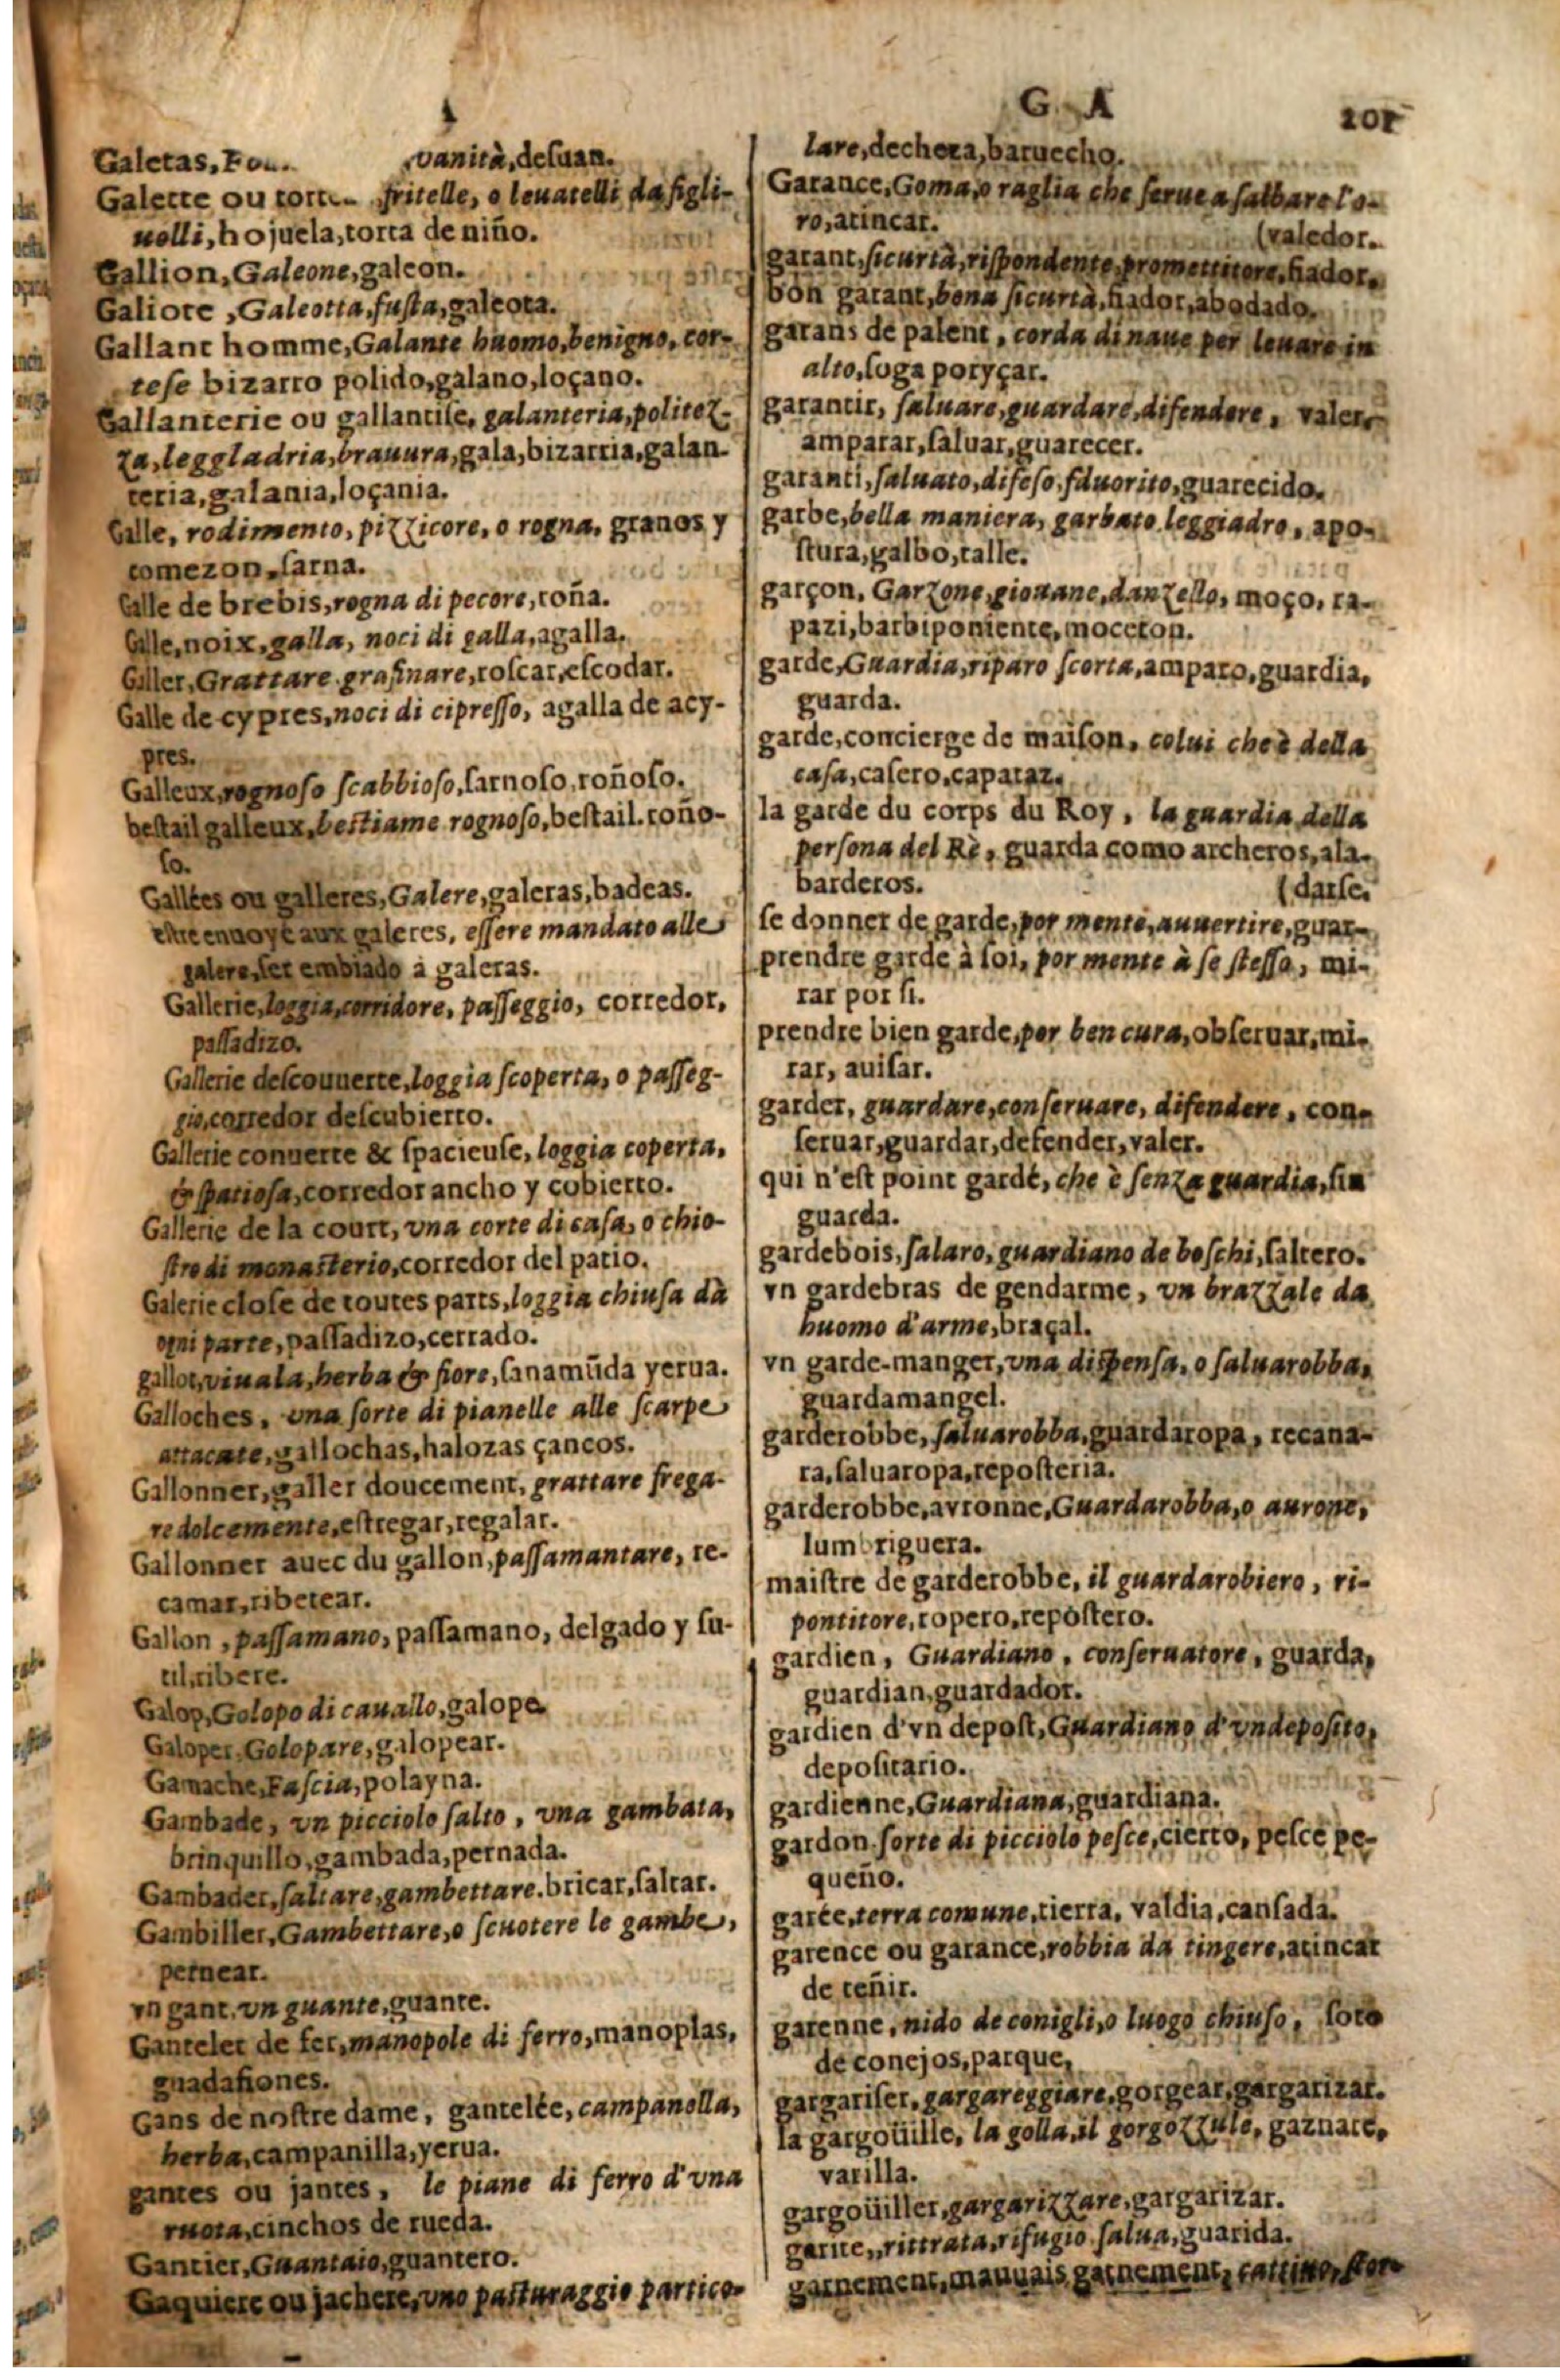 G A
201
Galetas, vanità, desuan.
Galette ou fritelle, o leuatelli da figli-
uolli, hojuela, torta de niño.
Gallion, Galeone, galeon.
Galiote, Galeotta, fusta, galeota.
Gallant homme, Galante huomo, benigno, cor-
tese bizarro polido, galano, loçano.
Gallanterie ou gallantise, galanteria, politez-
za, leggladria, brauura, gala, bizarria, galan-
teria, galania, loçania.
Galle, rodimento, pizzicore, o rogna, granos y
comezon, sarna.
Galle de brebis, rogna di pecore, roña.
Galle, noix, galla, noci di galla, agalla.
Galler, Grattare grafinare, roscar, escodar.
Galle de cypres, noci di cipresso, agalla de acy-
pres.
Galleux, rognoso scabbioso, sarnoso, roñoso.
bestail galleux, bestiame rognoso, bestail. roño-
so.
Gallées ou galleres, Galere, galeras, badeas.
estre enuoyé aux galeres, essere mandato alle
galere, ser embiado a galeras.
Gallerie, loggia, corridore, passeggio, corredor,
passadizo.
Gallerie descouuerte, loggia scoperta, o passeg-
gio, corredor descubierto.
Gallerie conuerte & spacieuse, loggia coperta,
& spatiosa, corredor ancho y cobierto.
Gallerie de la court, vna corte di casa, o chio-
stro di monasterio, corredor del patio.
Galerie close de toutes parts, loggia chiusa dà
ogni parte, passadizo, cerrado.
gallot, viuala, herba & fiore, sanamũda yerua.
Galloches, vna sorte di pianelle alle scarpe
attacate, gallochas, halozas çancos.
Gallonner, galler doucement, grattare frega-
re dolcemente, estregar, regalar.
Gallonner auec du gallon, passamantare, re-
camar, ribetear.
Gallon, passamano, passamano, delgado y su-
til, ribete.
Galop, Golopo di cauallo, galope.
Galoper, Golopare, galopear.
Gamache, Fascia, polayna.
Gambade, vn picciolo salto, vna gambata,
brinquillo, gambada, pernada.
Gambader, saltare, gambettare. bricar, saltar.
Gambiller, Gambettare, o scuotere le gambe,
pernear.
vn gant, vn guante, guante.
Gantelet de fer, manopole di ferro, manoplas,
guadafiones.
Gans de nostre dame, gantelée, campanella,
herba, campanilla, yerua.
gantes ou jantes, le piane di ferro d'vna
ruota, cinchos de rueda.
Gantier, Guantaio, guantero.
Gaquiere ou jachere, vno pasturaggio partico-
lare, decheza, baruecho.
Garance, Goma, o raglia che serue a salbare l'o-
ro, atincar.
(valedor.
garant, sicurtà, rispondente, promettitore, fiador,
bon garant, bona sicurtà, fiador, abodado.
garans de palent, corda di naue per leuare in
alto, soga poryçar.
garantir, saluare, guardare, difendere, valer,
amparar, saluar, guarecer.
garanti, saluato, difeso, fauorito, guarecido.
garbe, bella maniera, garbato leggiadro, apo-
stura, galbo, talle.
garçon, Garzone, giouane, danzello, moço, ra-
pazi, barbiponiente, moceton.
garde, Guardia, riparo scorta, amparo, guardia,
guarda.
garde, concierge de maison, colui che è della
casa, casero, capataz.
la garde du corps du Roy, la guardia della
persona del Rè, guarda como archeros, ala-
barderos.
(darse.
se donner de garde, por mente, auuertire, guar-
prendre garde à soi, por mente à se stesso, mi-
rar por si.
prendre bien garde, por ben cura, obseruar, mi-
rar, auisar.
garder, guardare, conseruare, difendere, con-
seruar, guardar, defender, valer.
qui n'est point gardé, che è senza guardia, sin
guarda.
gardebois, salaro, guardiano de boschi, saltero.
vn gardebras de gendarme, vn brazzale da
huomo d'arme, braçal.
vn garde-manger, vna dispensa, o saluarobba,
guardamangel.
garderobbe, saluarobba, guardaropa, recana-
ra, saluaropa, reposteria.
garderobbe, avronne, Guardarobba, o aurone,
lumbriguera.
maistre de garderobbe, il guardarobiero, ri-
pontitore, ropero, repostero.
gardien, Guardiano, conseruatore, guarda,
guardian, guardador.
gardien d'vn depost, Guardiano d'vn deposito,
depositario.
gardienne, Guardiana, guardiana.
gardon. sorte di picciolo pesce, cierto, pesce pe-
queño.
garée, terra comune, tierra, valdia, cansada.
garence ou garance, robbia da tingere, atincar
de teñir.
garenne, nido de conigli, o luogo chiuso, soto
de conejos, parque,
gargariser, gargareggiare, gorgear, gargarizar.
la gargoüille, la golla, il gorgozzule, gaznate,
varilla.
gargoüiller, gargarizzare, gargarizar.
garite, rittrata, rifugio salua, guarida.
garnement, mauuais garnement, cattiuo,